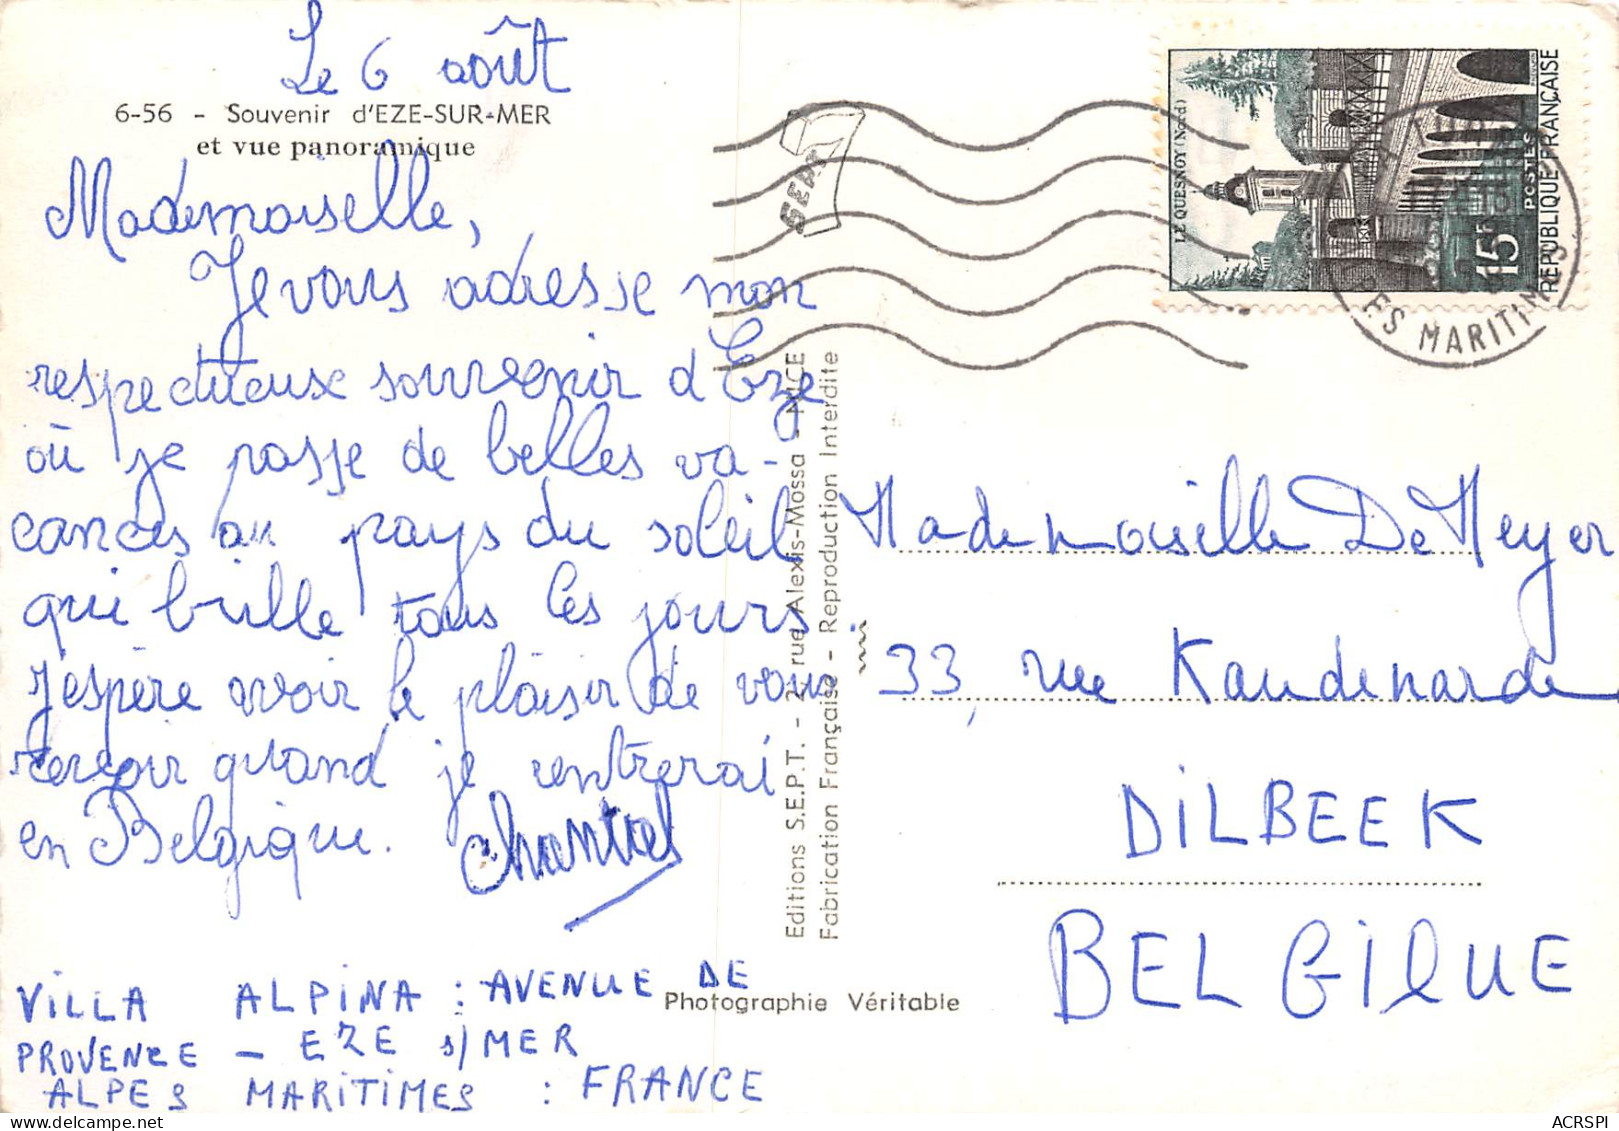 Le 6 août
6-56 - Souvenir d'EZE-SUR-MER
et vue panoramique
Mademoiselle,
Je vous adresse mon
respectueuse souvenir d'Eze
où je passe de belles va-
cances au pays du soleil
qui brille tous les jours
J'espère avoir le plaisir de vous
revoir quand je rentrerai
en Belgique. Chantal
VILLA ALPINA : AVENUE DE
PROVENCE - EZE s/ MER
ALPES MARITIMES : FRANCE
Editions S.E.P.T. - 2, rue Alexis-Mossa - NICE
Fabrication Française - Reproduction Interdite
Photographie Véritable
SEPT
LE QUESNOY (Nord)
15F
POSTES
REPUBLIQUE FRANÇAISE
ES MARITIMES
Mademoiselle De Meyer
33, rue Kaudenarde
DILBEEK
BELGIQUE
ACRSPI